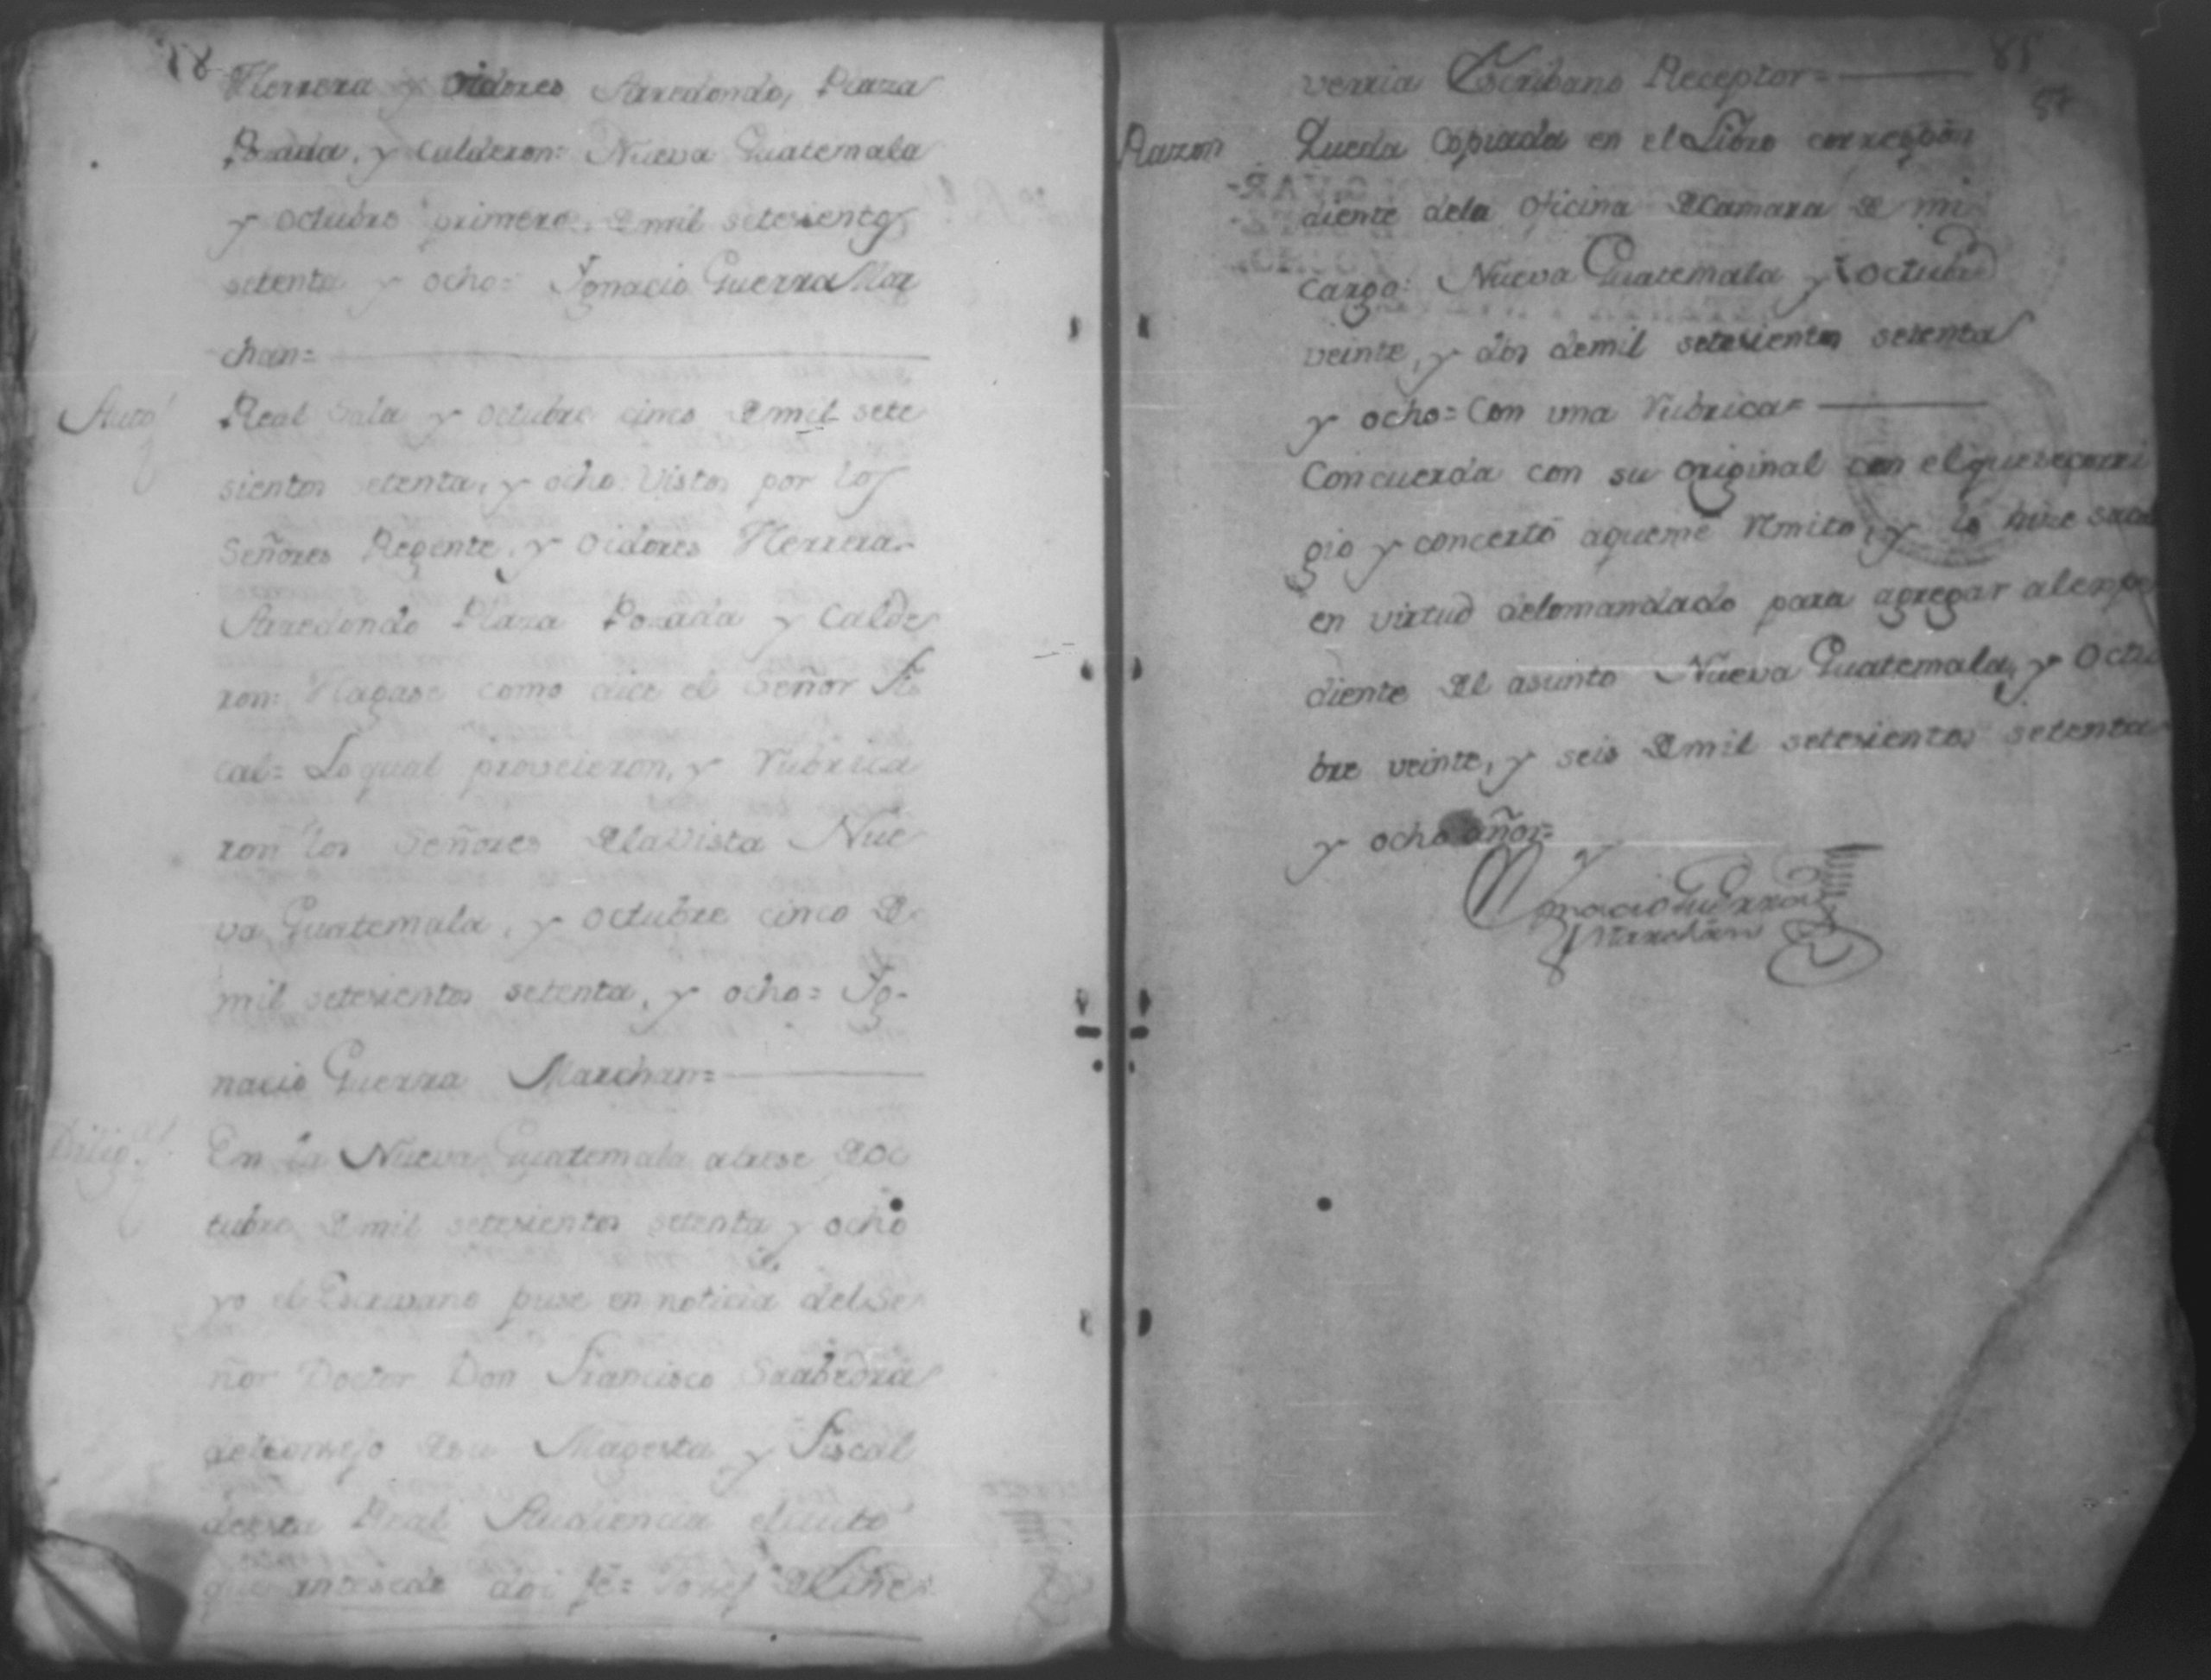 Herrera y oidores Arredondo, Plaza
Posada, y Calderon: Nueva Guatemala
y octubre primero, de mil setesientos
setenta y ocho= Ygnacio Guerra Mar
chan=
Auto
Real Sala y octubre cinco de mil sete
sientos setenta, y ocho: Vistos por los
Señores Regente, y Oidores Herrera
Arredondo Plaza Posada y Calde
ron: Hagase como dice el Señor Fis
cal= Lo qual proveieron, y rubrica
ron los Señores de la Vista Nue
va Guatemala, y octubre cinco de
mil setesientos setenta, y ocho= Yg-
nacio Guerra Marchan=
Dilig.ª
En la Nueva Guatemala atrese de oc
tubre de mil setesientos setenta y ocho
yo el Escrivano puse en noticia del Se
ñor Doctor Don Francisco Saabedra
del consejo de su Magesta y Fiscal
de esta Real Audiencia el auto
que antesede doi fe= Josef de Eche
85
verria Escribano Receptor=
Razon
Queda Copiada en el Libro correspon
diente dela Oficina de Camara de mi
cargo: Nueva Guatemala y octubre
veinte, y dos demil setesientos setenta
y ocho= Con una rubrica=
Concuerda con su original con el que se corri
gio y concertó aqueme remito, y lo hise sacar
en virtud delomandado para agregar al expe
diente del asunto Nueva Guatemala, y Octu
bre veinte, y seis de mil setesientos setenta
y ocho años=
Ygnacio Guerra
Marchan